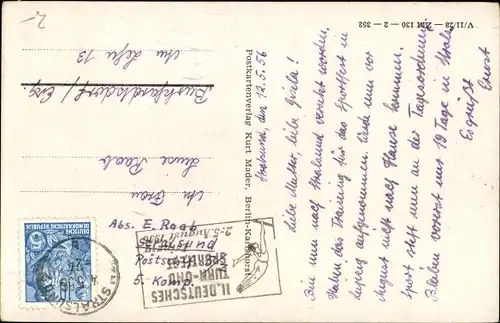 V/11/28 — ZM 130 — 2 — 352
Stralsund, den 12.5.56
Liebe Mutter, liebe Gisela!
Bin nun nach Stralsund versetzt worden.
Haben das Training für das Sportfest in
Leipzig aufgenommen. Werde nun vor
August nicht nach Hause kommen.
Sport steht nun an der Tagesordnung
Bleiben vorerst mal 10 Tage in Strals.
Es grüßt
Ernst
Postkartenverlag Kurt Mader, Berlin-Karlshorst
2.-
DEUTSCHE
DEMOKRATISCHE REPUBLIK
STRALSUND
II. DEUTSCHES
TURN- UND
SPORTFEST
2.-5. August 1956
Abs. E. Raab
Stralsund
Postschließf.
5. Komp.
An Frau
Luise Raab
Burkhardtsdorf / Erzg.